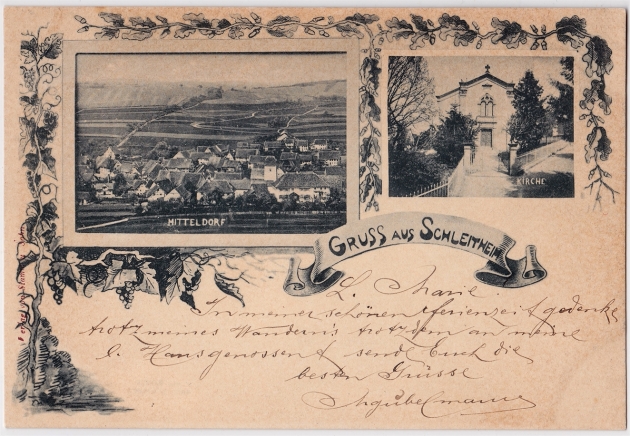 MITTELDORF
KIRCHE
GRUSS AUS SCHLEITHEIM
L. Marie.
In meiner schönen Ferienzeit gedenke
trotz meines Wanderns trotzdem an meine
l. Hausgenossen & sende Euch die
besten Grüsse